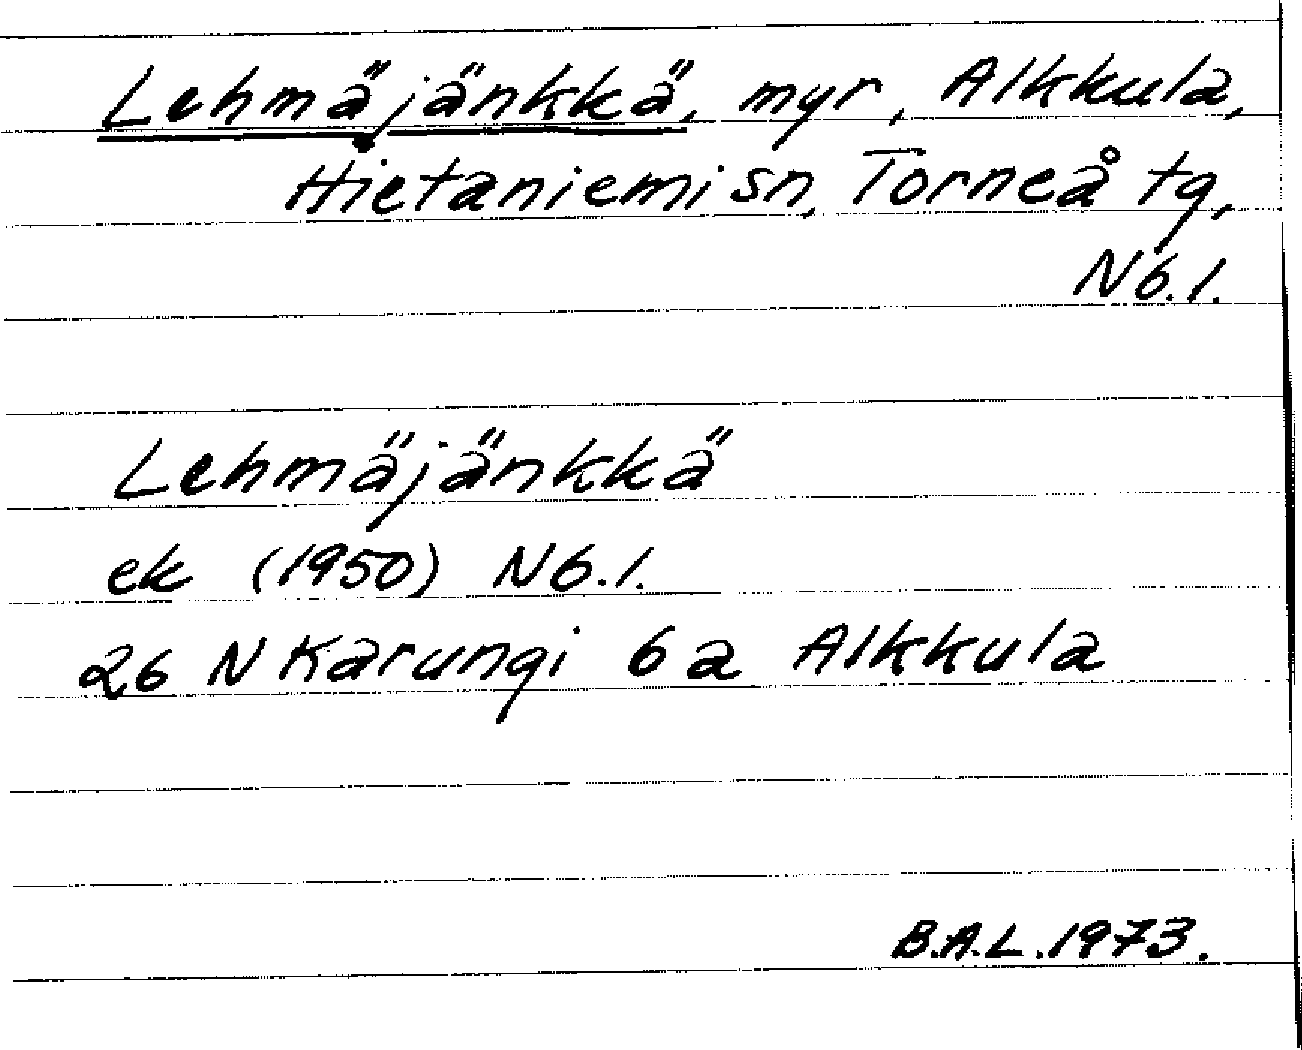 Lehmäjänkkä, myr, Alkkula,
Hietaniemi sn, Torneå tg,
Nb.l.
Lehmäjänkkä
ek (1950) Nb.l.
26 N Karungi 6 a Alkkula
B.A.L. 1973.